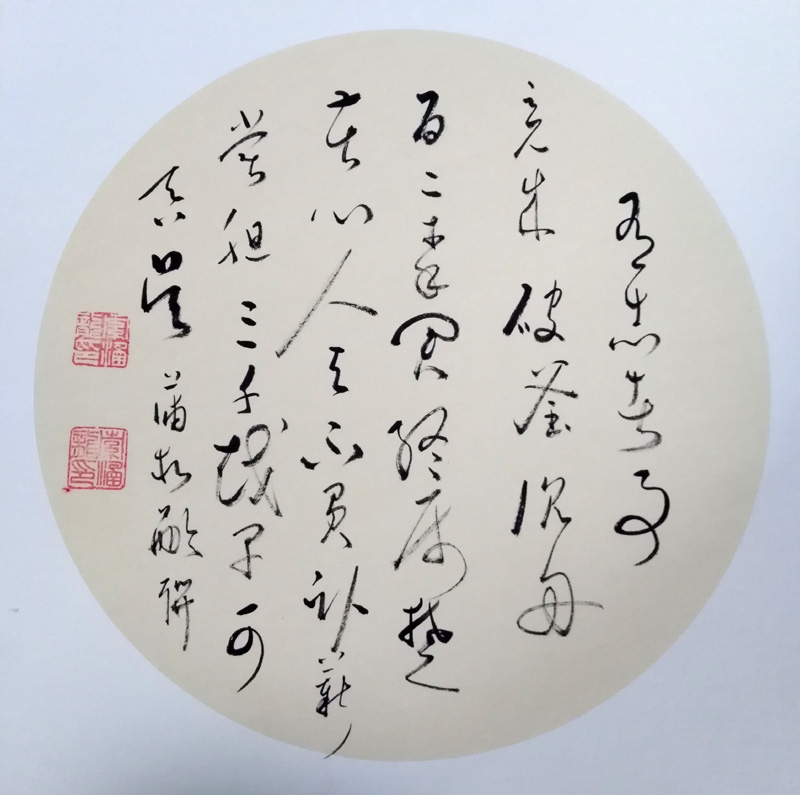 有志者事
竟成破釜沉舟
百二秦関終属楚
苦心人天不負卧薪
嘗胆三千越甲可
吞吴 蒲松齡聯